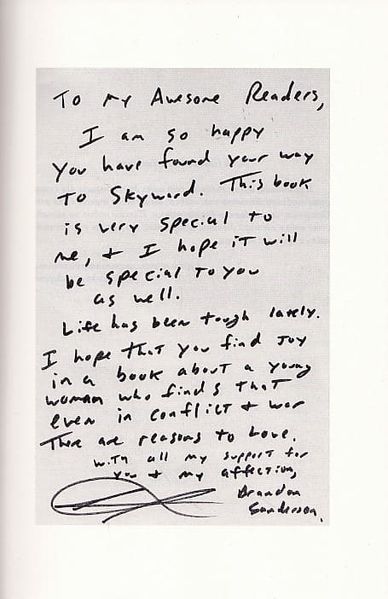 To my Awesome Readers,
I am so happy
you have found your way
To Skyward. This book
is very special to
me, + I hope it will
be special To you
as well.
Life has been tough lately.
I hope that you find Joy
in a book about a young
woman who finds that
even in conflict + war
There are reasons to Love.
with all my support for
you + my affection,
Brandon
Sanderson.